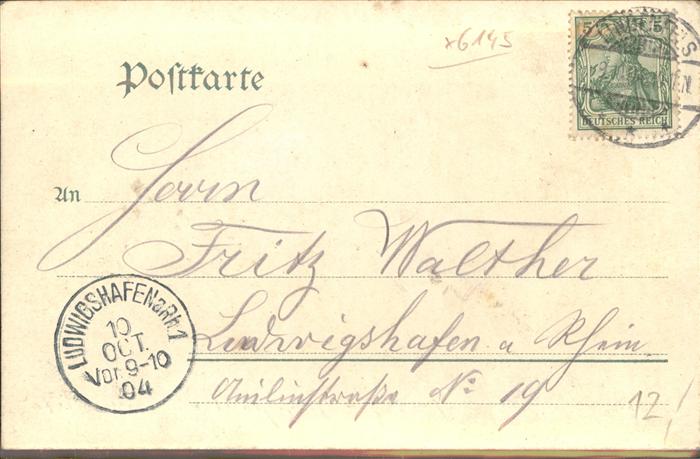 x6145
5 5
DEUTSCHES REICH
Postkarte
An Herrn
Fritz Walther
Ludwigshafen a Rhein
Anilinstraße No 19
LUDWIGSHAFEN a. Rh. 1
10.
OCT.
Vor. 9-10
04
12